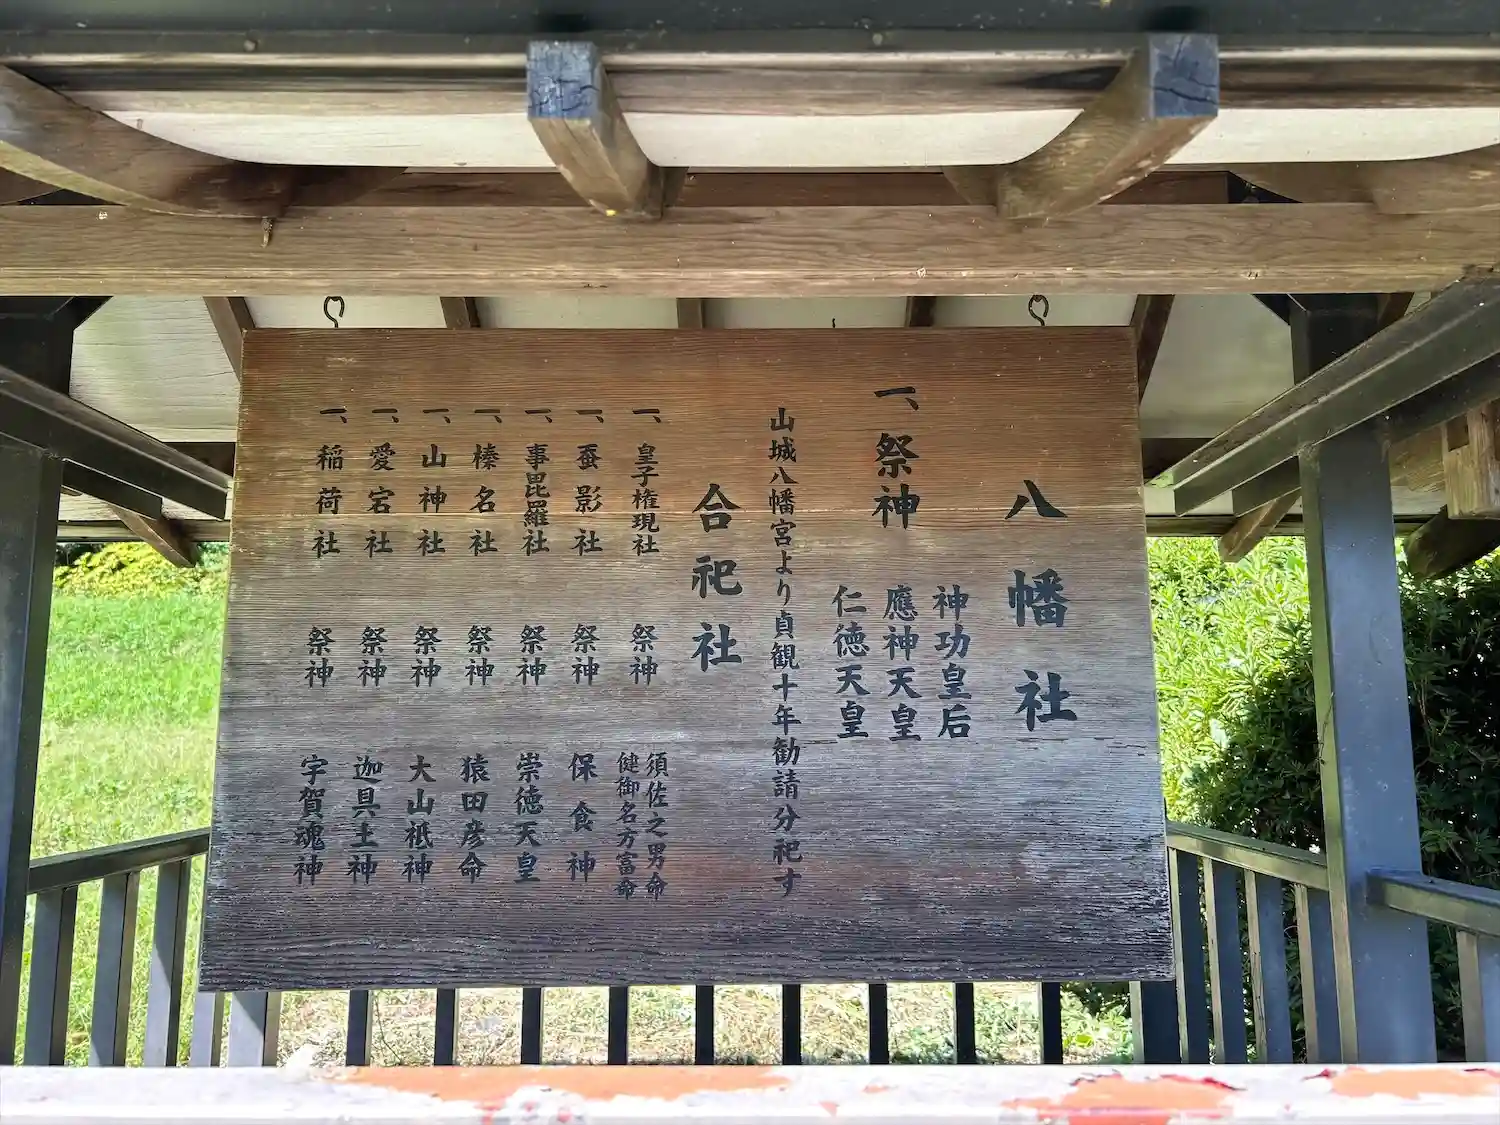 八幡社
一、祭神
神功皇后
應神天皇
仁徳天皇
山城八幡宮より貞観十年勧請分祀す
合祀社
一、皇子権現社 祭神 須佐之男命
健御名方富命
一、蚕影社 祭神 保食神
一、事毘羅社 祭神 崇徳天皇
一、榛名社 祭神 猿田彦命
一、山神社 祭神 大山祇神
一、愛宕社 祭神 迦具土神
一、稲荷社 祭神 宇賀魂神